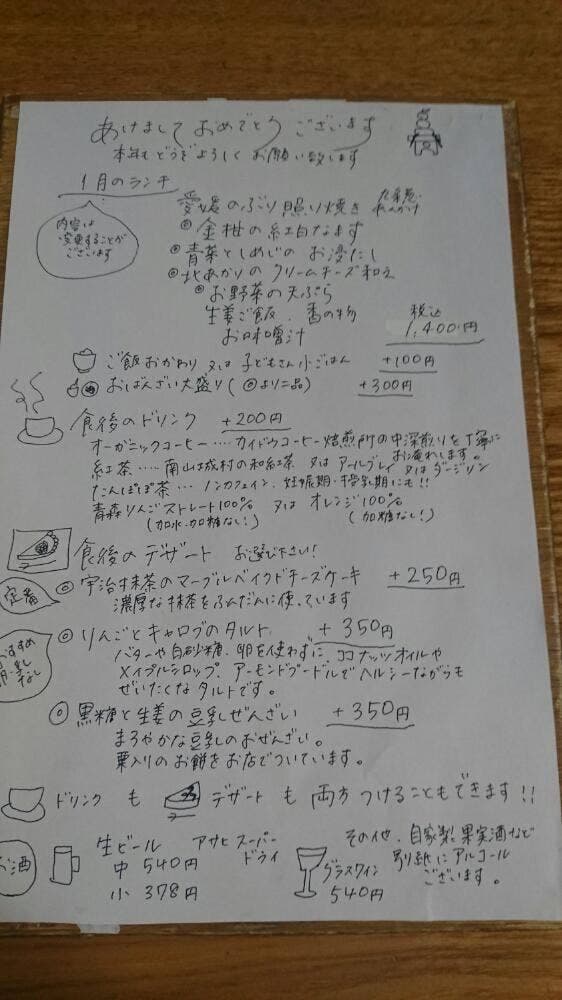 あけまして おめでとう ございます
本年もどうぞよろしく お願い致します
1月のランチ
内容は
変更することが
ございます
愛媛のぶり照り焼き 九条葱あんかけ
◎金柑の紅白なます
◎青菜としめじの お浸たし
◎北あかりの クリームチーズ和え
◎お野菜の天ぷら
生姜ご飯、香の物
お味噌汁
税込
1,400円
ご飯おかわり 又は 子どもさん小ごはん +100円
おばんざい大盛り(◎より二品) +300円
食後のドリンク +200円
オーガニックコーヒー‥‥カイドウコーヒー焙煎所の中深煎りを丁寧に
お淹れします。
紅茶‥‥南山城村の和紅茶 又は アールグレイ 又は ダージリン
たんぽぽ茶‥‥ノンカフェイン、妊娠期・授乳期にも!!
青森りんごストレート100% 又は オレンジ100%
(加水・加糖なし!) (加糖なし!)
食後のデザート お選び下さい!
定番
◎宇治抹茶のマーブルベイクドチーズケーキ +250円
濃厚な抹茶をふんだんに使っています
おすすめ
卵・乳
なし
◎りんごとキャロブのタルト +350円
バターや白砂糖、卵を使わずに ココナッツオイルや
メイプルシロップ、アーモンドプードルでヘルシーながらも
ぜいたくなタルトです。
◎黒糖と生姜の豆乳ぜんざい +350円
まろやかな豆乳のおぜんざい。
粟入りのお餅をお店でついています。
ドリンク も デザート も 両方 つけることもできます!!
お酒
生ビール アサヒスーパー
ドライ
中 540円
小 378円
グラスワイン
540円
その他、自家製果実酒など
別紙にアルコール
ございます。